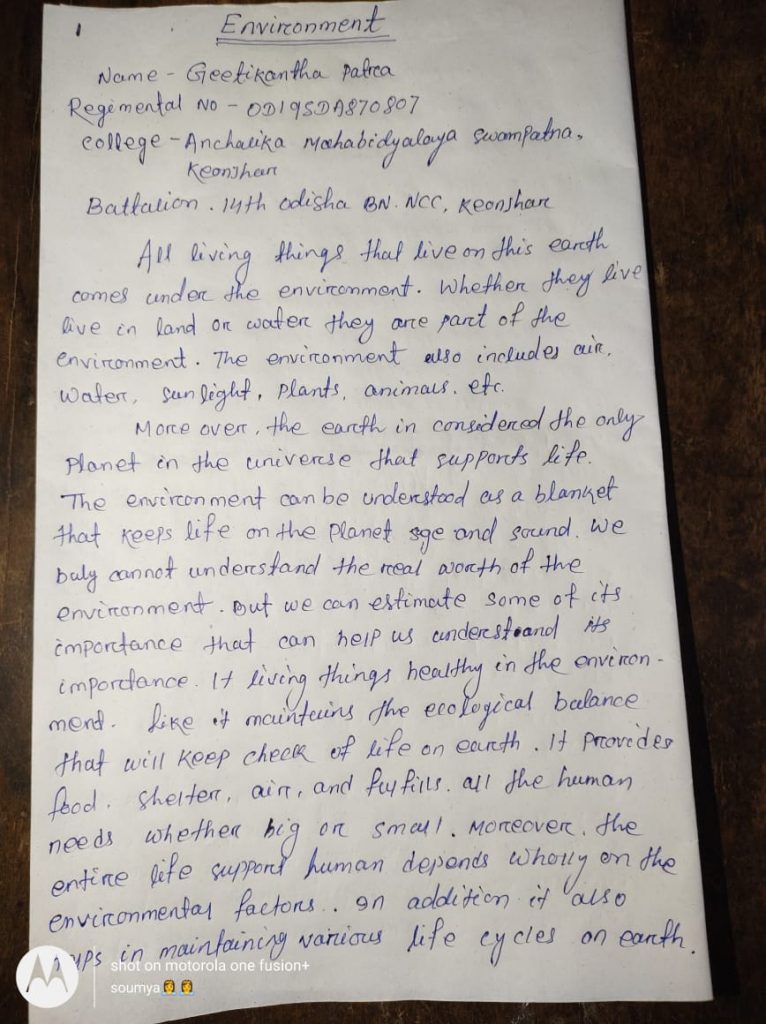 1
Environment
Name - Geetikantha Patra
Regimental No - OD19SDA870807
College - Anchalika Mahabidyalaya Swampatna,
Keonjhar
Battalion. 14th Odisha BN. NCC, Keonjhar
All living things that live on this earth
comes under the environment. Whether they live
live in land or water they are part of the
environment. The environment also includes air,
water, sunlight, plants, animals, etc.
More over, the earth in considered the only
planet in the universe that supports life.
The environment can be understood as a blanket
that keeps life on the planet sge and sound. We
buly cannot understand the real worth of the
environment. But we can estimate some of its
importance that can help us understand its
importance. It living things healthy in the environ-
ment. Like it maintains the ecological balance
that will keep check of life on earth. It provides
food, shelter, air, and fulfills all the human
needs whether big or small. Moreover, the
entire life support human depends wholly on the
environmental factors. In addition it also
helps in maintaining various life cycles on earth.
shot on motorola one fusion+
soumya👩👩